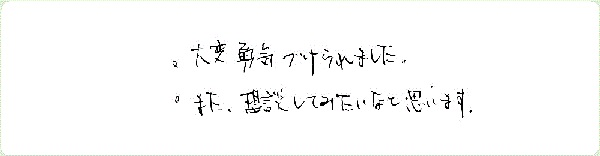 。大変勇気づけられました。
。また、相談してみたいなと思います。